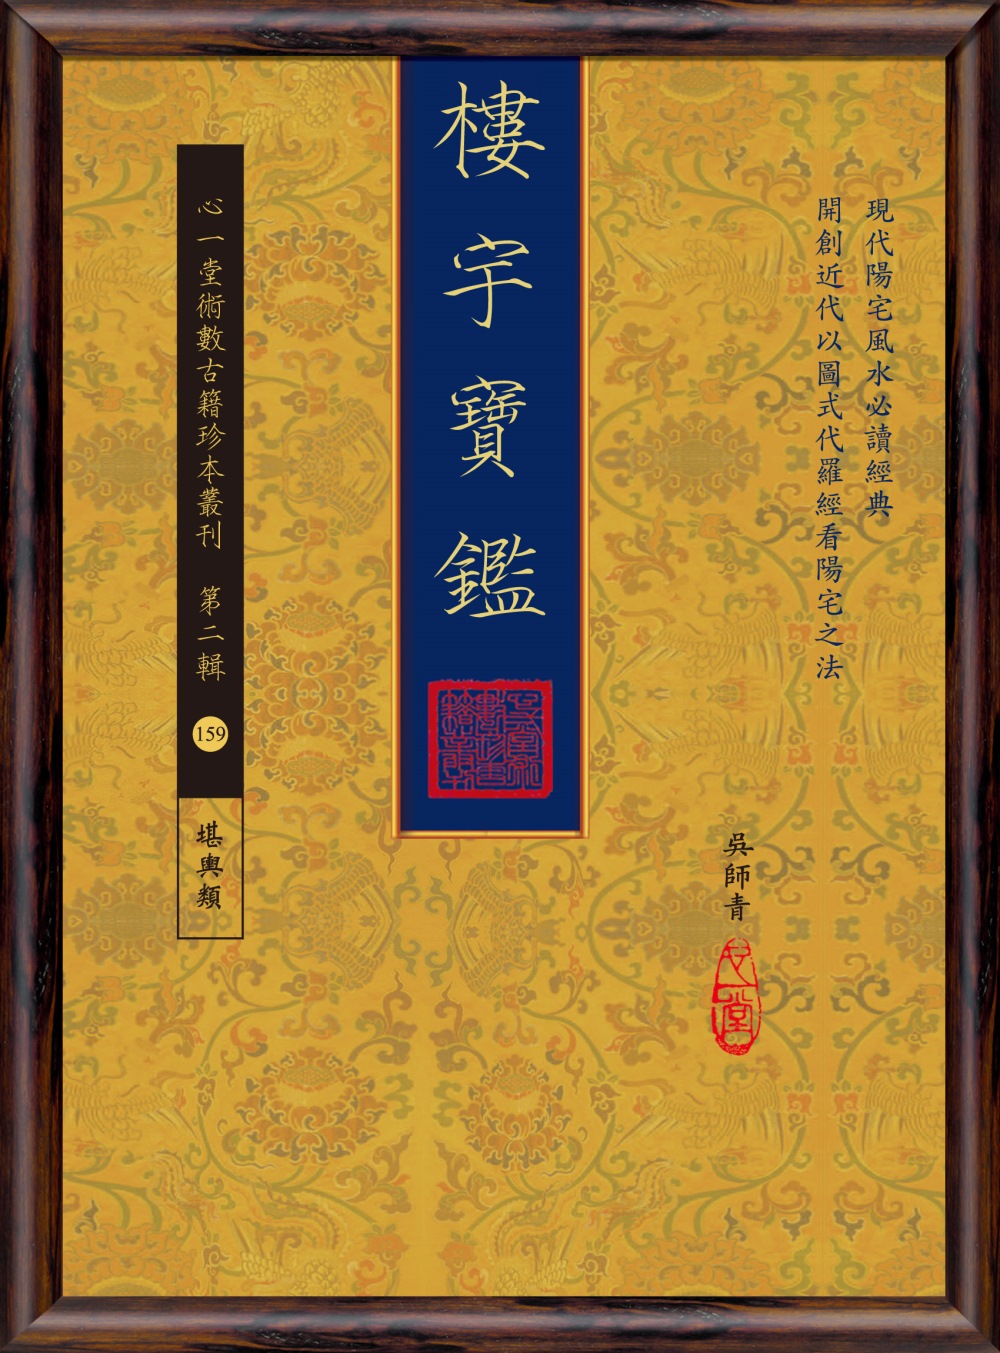 現代陽宅風水必讀經典
開創近代以圖式代羅經看陽宅之法
吳師青
心一堂
樓宇寶鑑
心一堂術數古籍珍本叢刊 第二輯
159
堪輿類